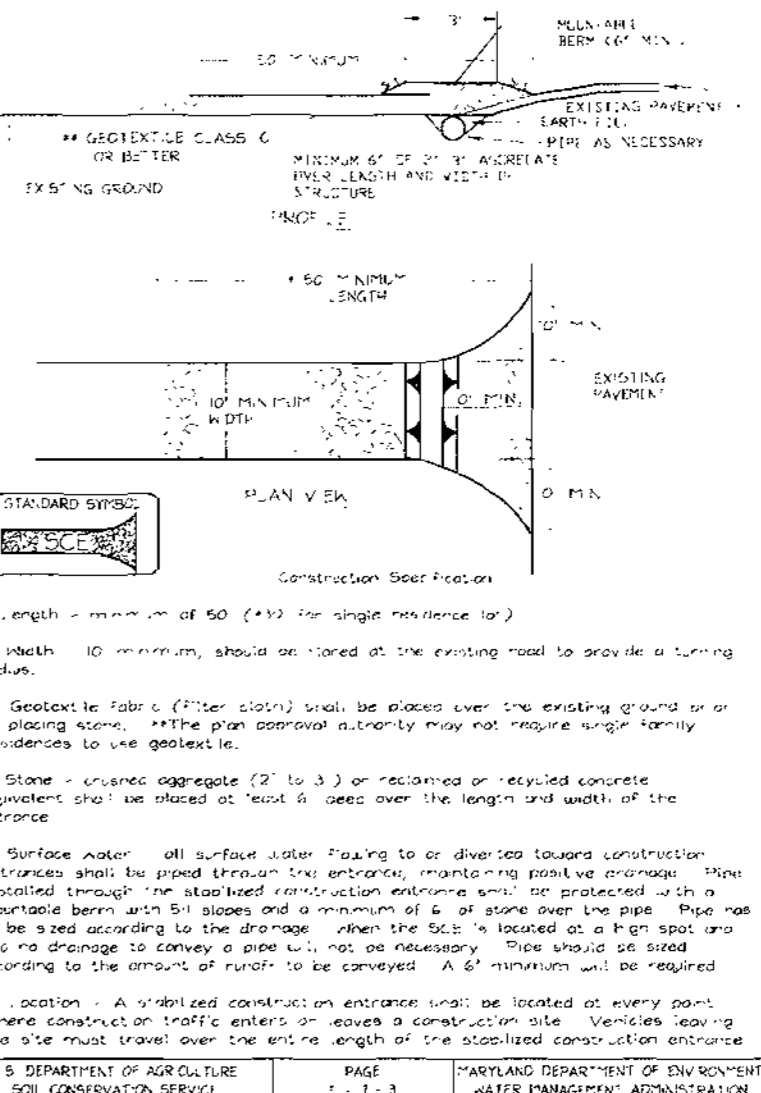 3'
MOUNTABLE
BERM (6" MIN.)
50' MINIMUM
EXISTING PAVEMENT
** GEOTEXTILE CLASS C
EARTH FILL
OR BETTER
PIPE AS NECESSARY
MINIMUM 6" OF 2"-3" AGGREGATE
EXISTING GROUND
OVER LENGTH AND WIDTH OF
STRUCTURE
PROFILE
* 50' MINIMUM
LENGTH
10' MIN.
EXISTING
PAVEMENT
10' MINIMUM
10' MIN.
WIDTH
PLAN VIEW
10' MIN.
STANDARD SYMBOL
SCE
Construction Specification
Length - minimum of 50' (*30' for single residence lot)
Width - 10' minimum, should be flared at the existing road to provide a turning
Geotextile fabric (filter cloth) shall be placed over the existing ground prior
placing stone. **The plan approval authority may not require single family
to use geotextile.
Stone - crushed aggregate (2" to 3") or reclaimed or recycled concrete
shall be placed at least 6" deep over the length and width of the
Surface Water - all surface water flowing to or diverted toward construction
shall be piped through the entrance, maintaining positive drainage. Pipe
through the stabilized construction entrance shall be protected with a
berm with 5:1 slopes and a minimum of 6" of stone over the pipe. Pipe has
be sized according to the drainage. When the SCE is located at a high spot and
no drainage to convey a pipe will not be necessary. Pipe should be sized
according to the amount of runoff to be conveyed. A 6" minimum will be required
Location - A stabilized construction entrance shall be located at every point
where construction traffic enters or leaves a construction site. Vehicles leaving
site must travel over the entire length of the stabilized construction entrance
S. DEPARTMENT OF AGRICULTURE
PAGE
MARYLAND DEPARTMENT OF ENVIRONMENT
SOIL CONSERVATION SERVICE
WATER MANAGEMENT ADMINISTRATION